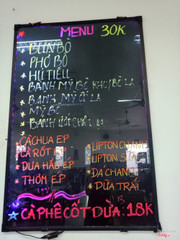 MENU 30K
BÚN BÒ
PHỞ BÒ
HỦ TIẾU
BÁNH MỲ BÒ KHO/BÒ LÁ
BÁNH MỲ ỐP LA
MỲ BÒ
BÁNH
CÀ CHUA ÉP
CÀ RỐT ÉP
DƯA HẤU ÉP
THƠM ÉP
LIPTON
LIPTON SỮA
ĐÁ CHANH
DỪA TRÁI
CÀ PHÊ CỐT DỪA: 18K